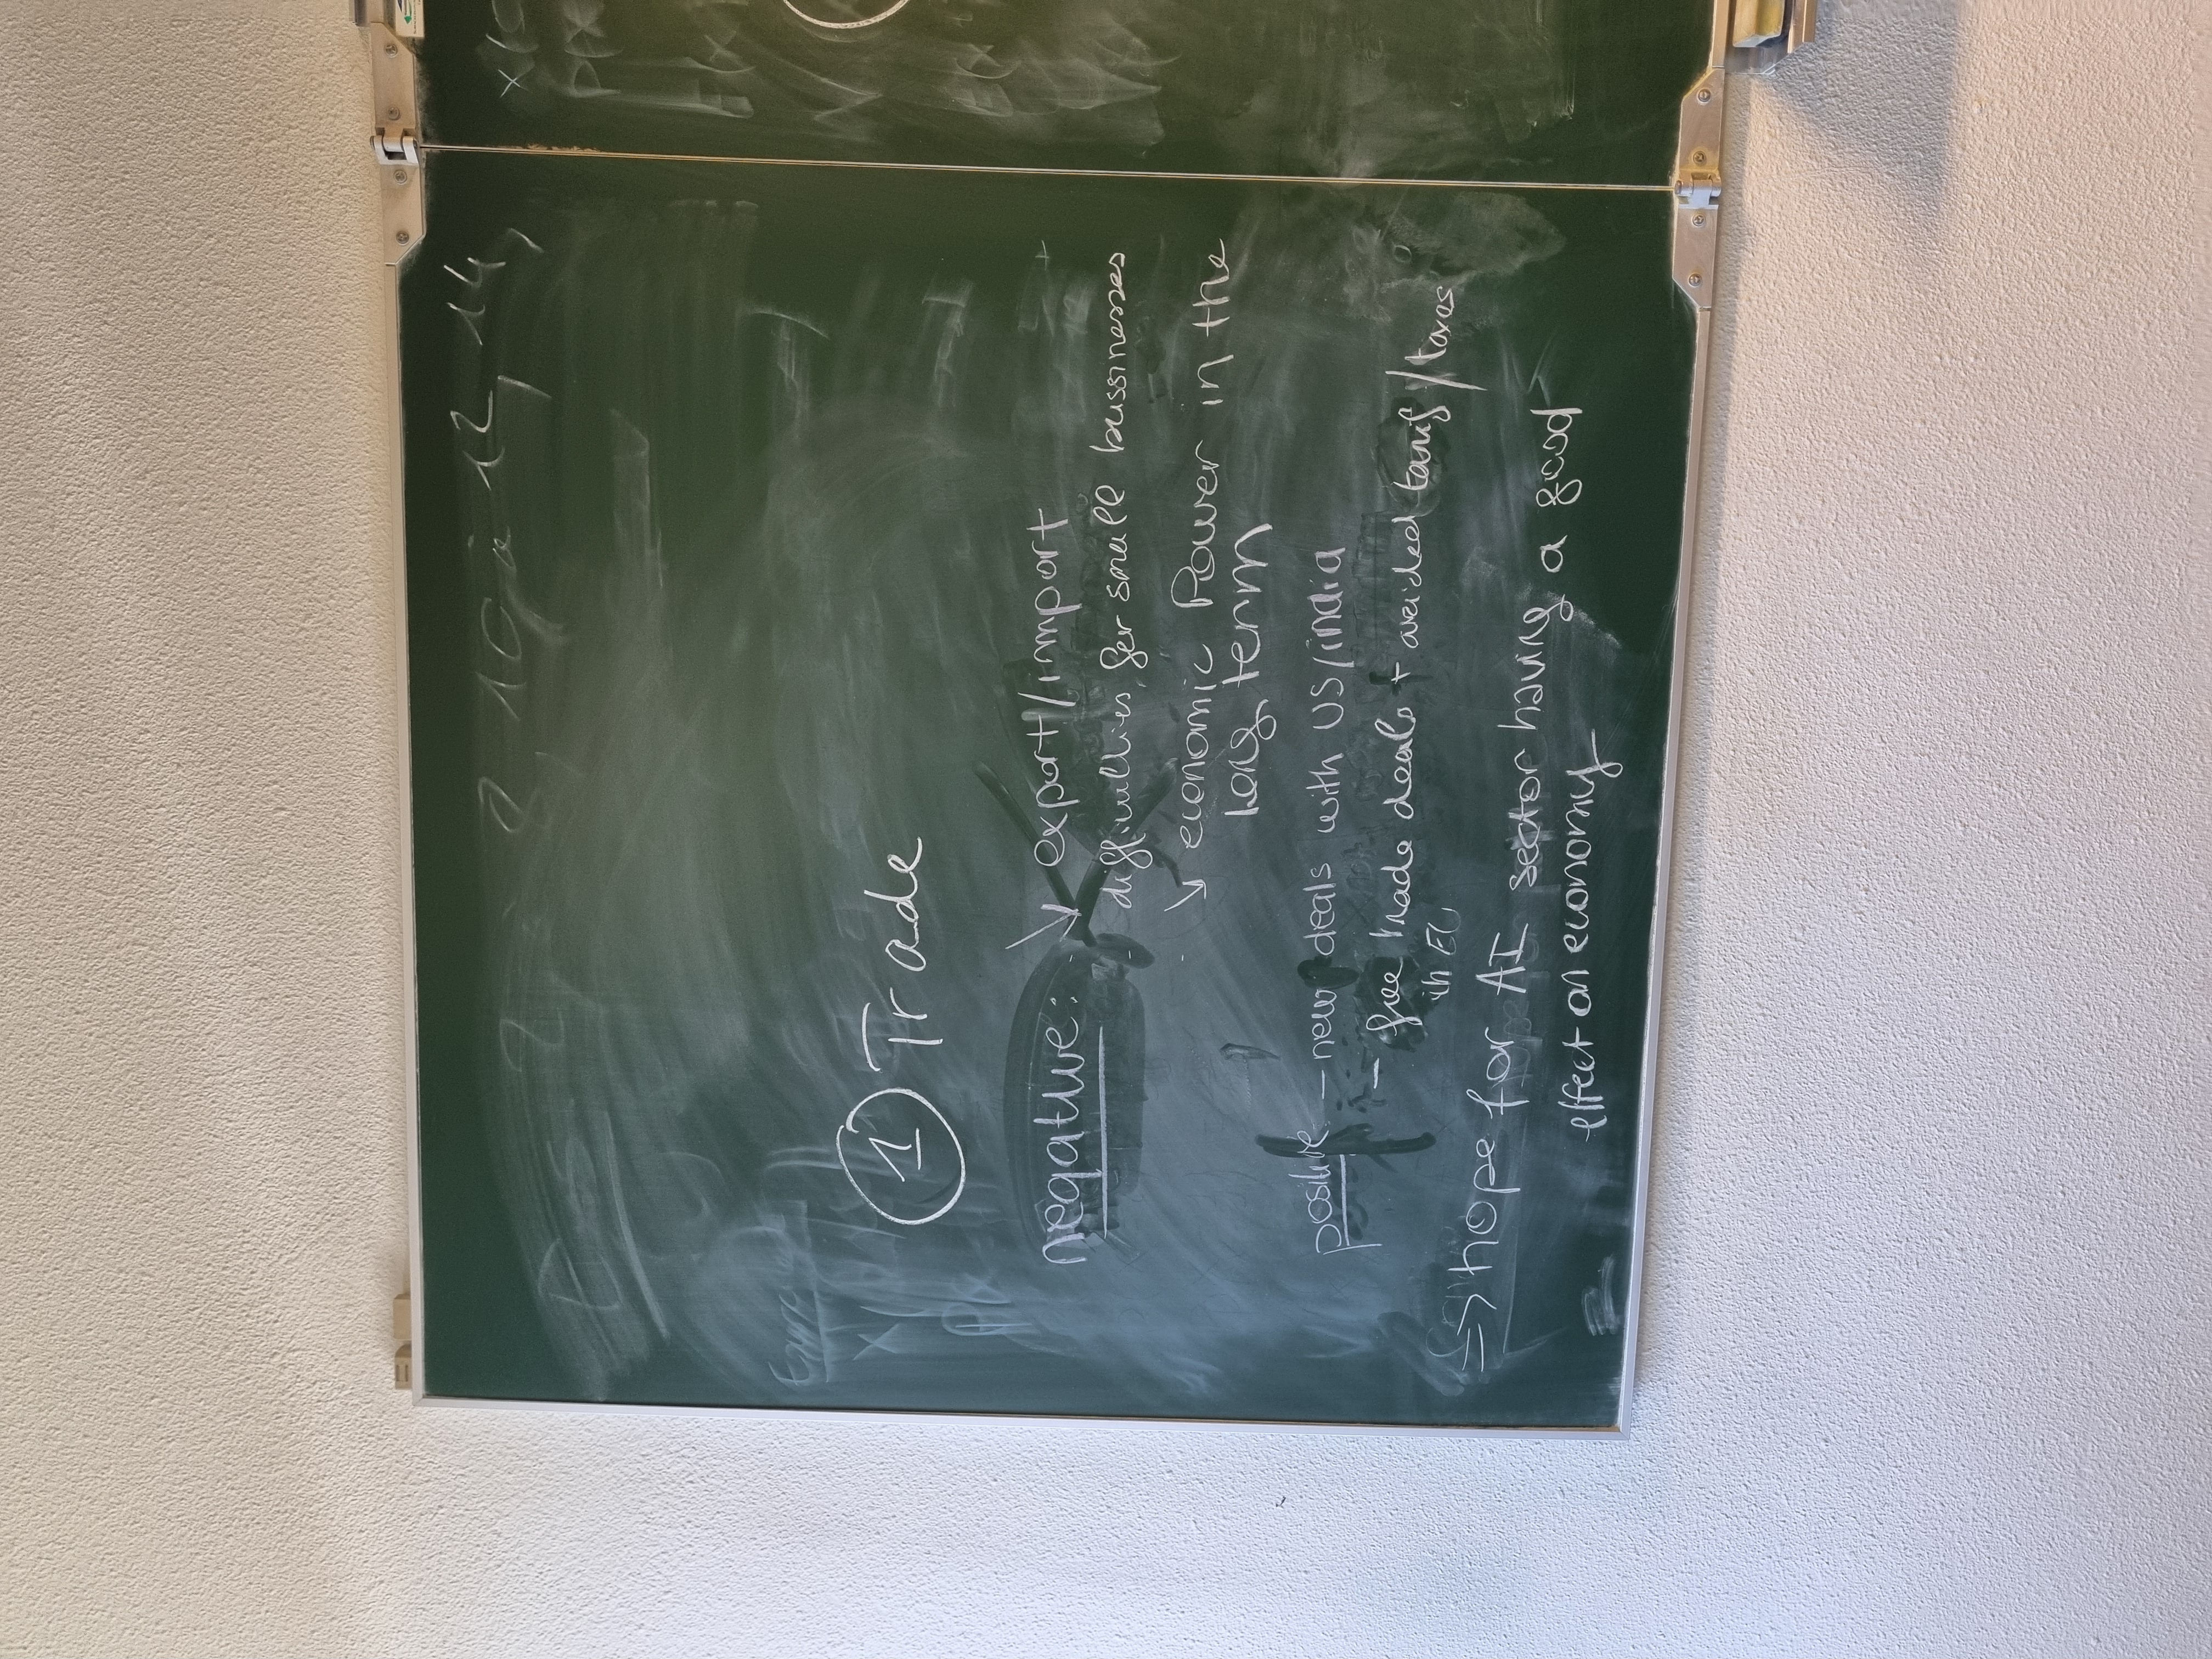 ① Trade
negative: ↘ export/import
difficulties for small bussinesses
↘ economic Power in the
long term
positive - new deals with US/india
- free trade deals + avoided tarif/taxes
in EU
=> hope for AI sector having a good
effect on economy